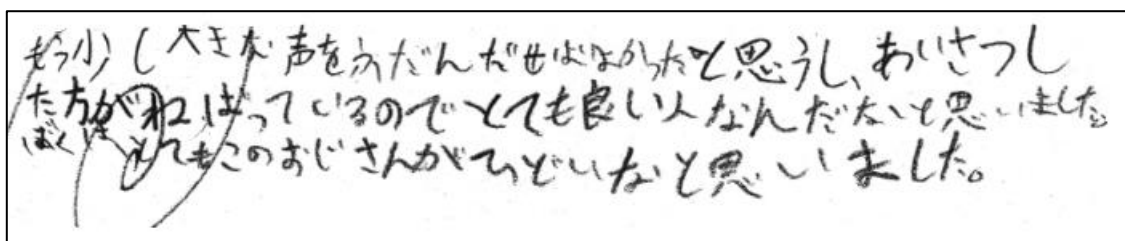 もう少し大きな声をふだんだせばよかったと思うし、あいさつし
た方がねばっているのでとても良い人なんだないと思いました。
ぼくはとてもこのおじさんがひどいなと思いました。